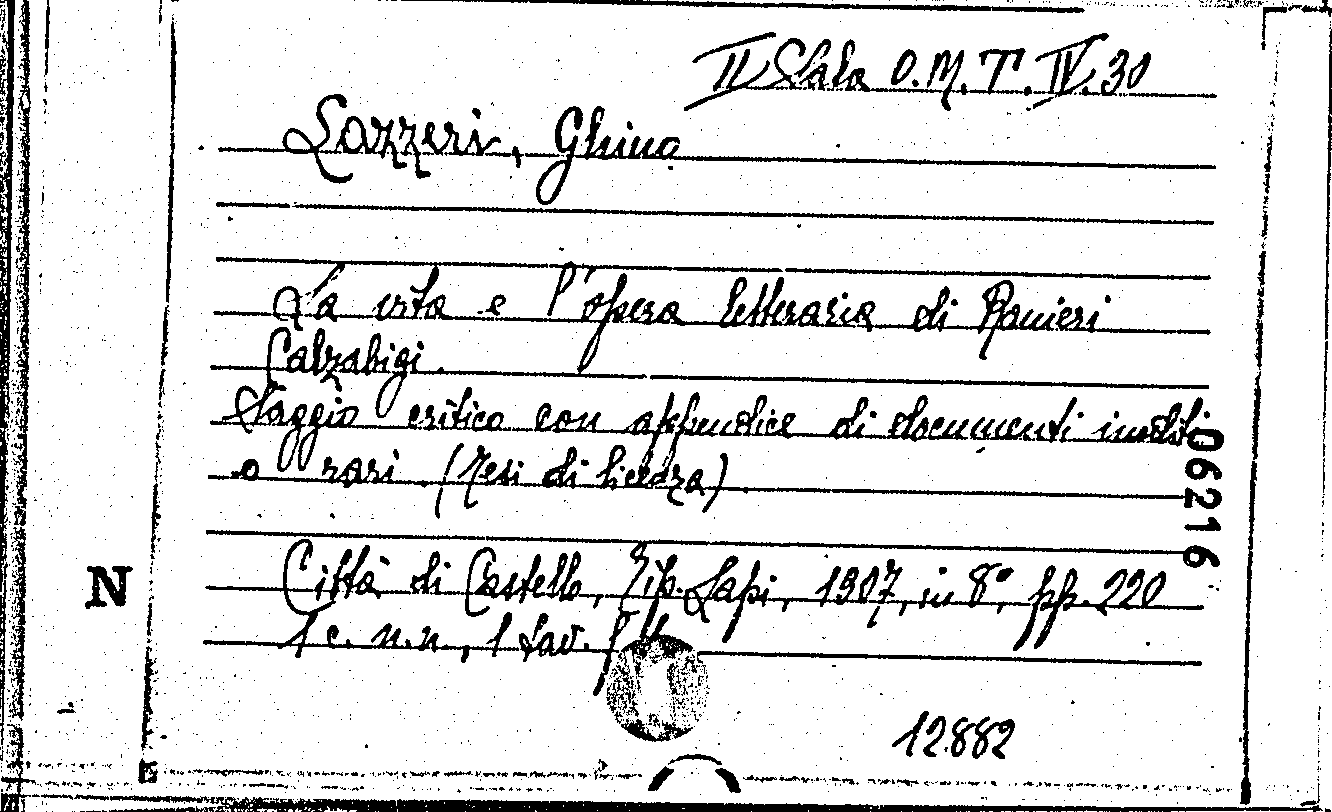 II Sala O.M.T.IV.30
Lazzeri, Ghino
La vita e l'opera letteraria di Ranieri
Calzabigi.
Saggio critico con appendice di documenti inediti
o rari. (Tesi di licenza).
Città di Castello, Tip. Lapi, 1907, in 8°, pp. 220
1 c. n.n., 1 tav.
06216
N
12882